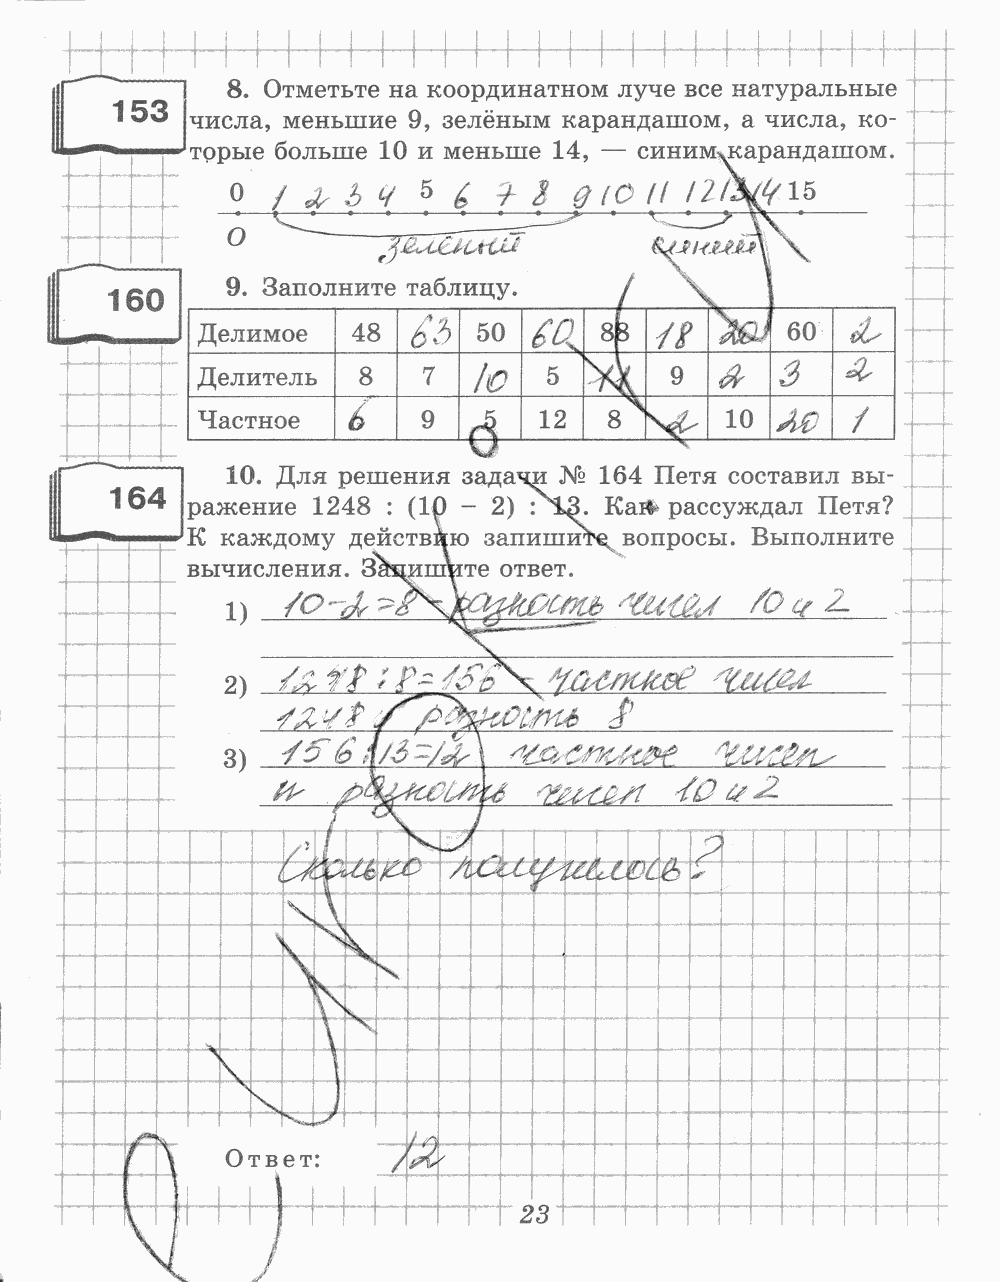 153
8. Отметьте на координатном луче все натуральные
числа, меньшие 9, зелёным карандашом, а числа, ко-
торые больше 10 и меньше 14, — синим карандашом.
0 1 2 3 4 5 6 7 8 9 10 11 12 13 14 15
О зелёный синий
160
9. Заполните таблицу.
Делимое 48 63 50 60 88 18 20 60 2
Делитель 8 7 10 5 11 9 2 3 2
Частное 6 9 5 12 8 2 10 20 1
164
10. Для решения задачи № 164 Петя составил вы-
ражение 1248 : (10 − 2) : 13. Как рассуждал Петя?
К каждому действию запишите вопросы. Выполните
вычисления. Запишите ответ.
1) 10-2=8 - разность чисел 10 и 2
2) 1248:8=156 - частное чисел
1248 и разность 8
3) 156:13=12 частное чисел
и разность чисел 10 и 2
Сколько получилось?
Ответ: 12
23